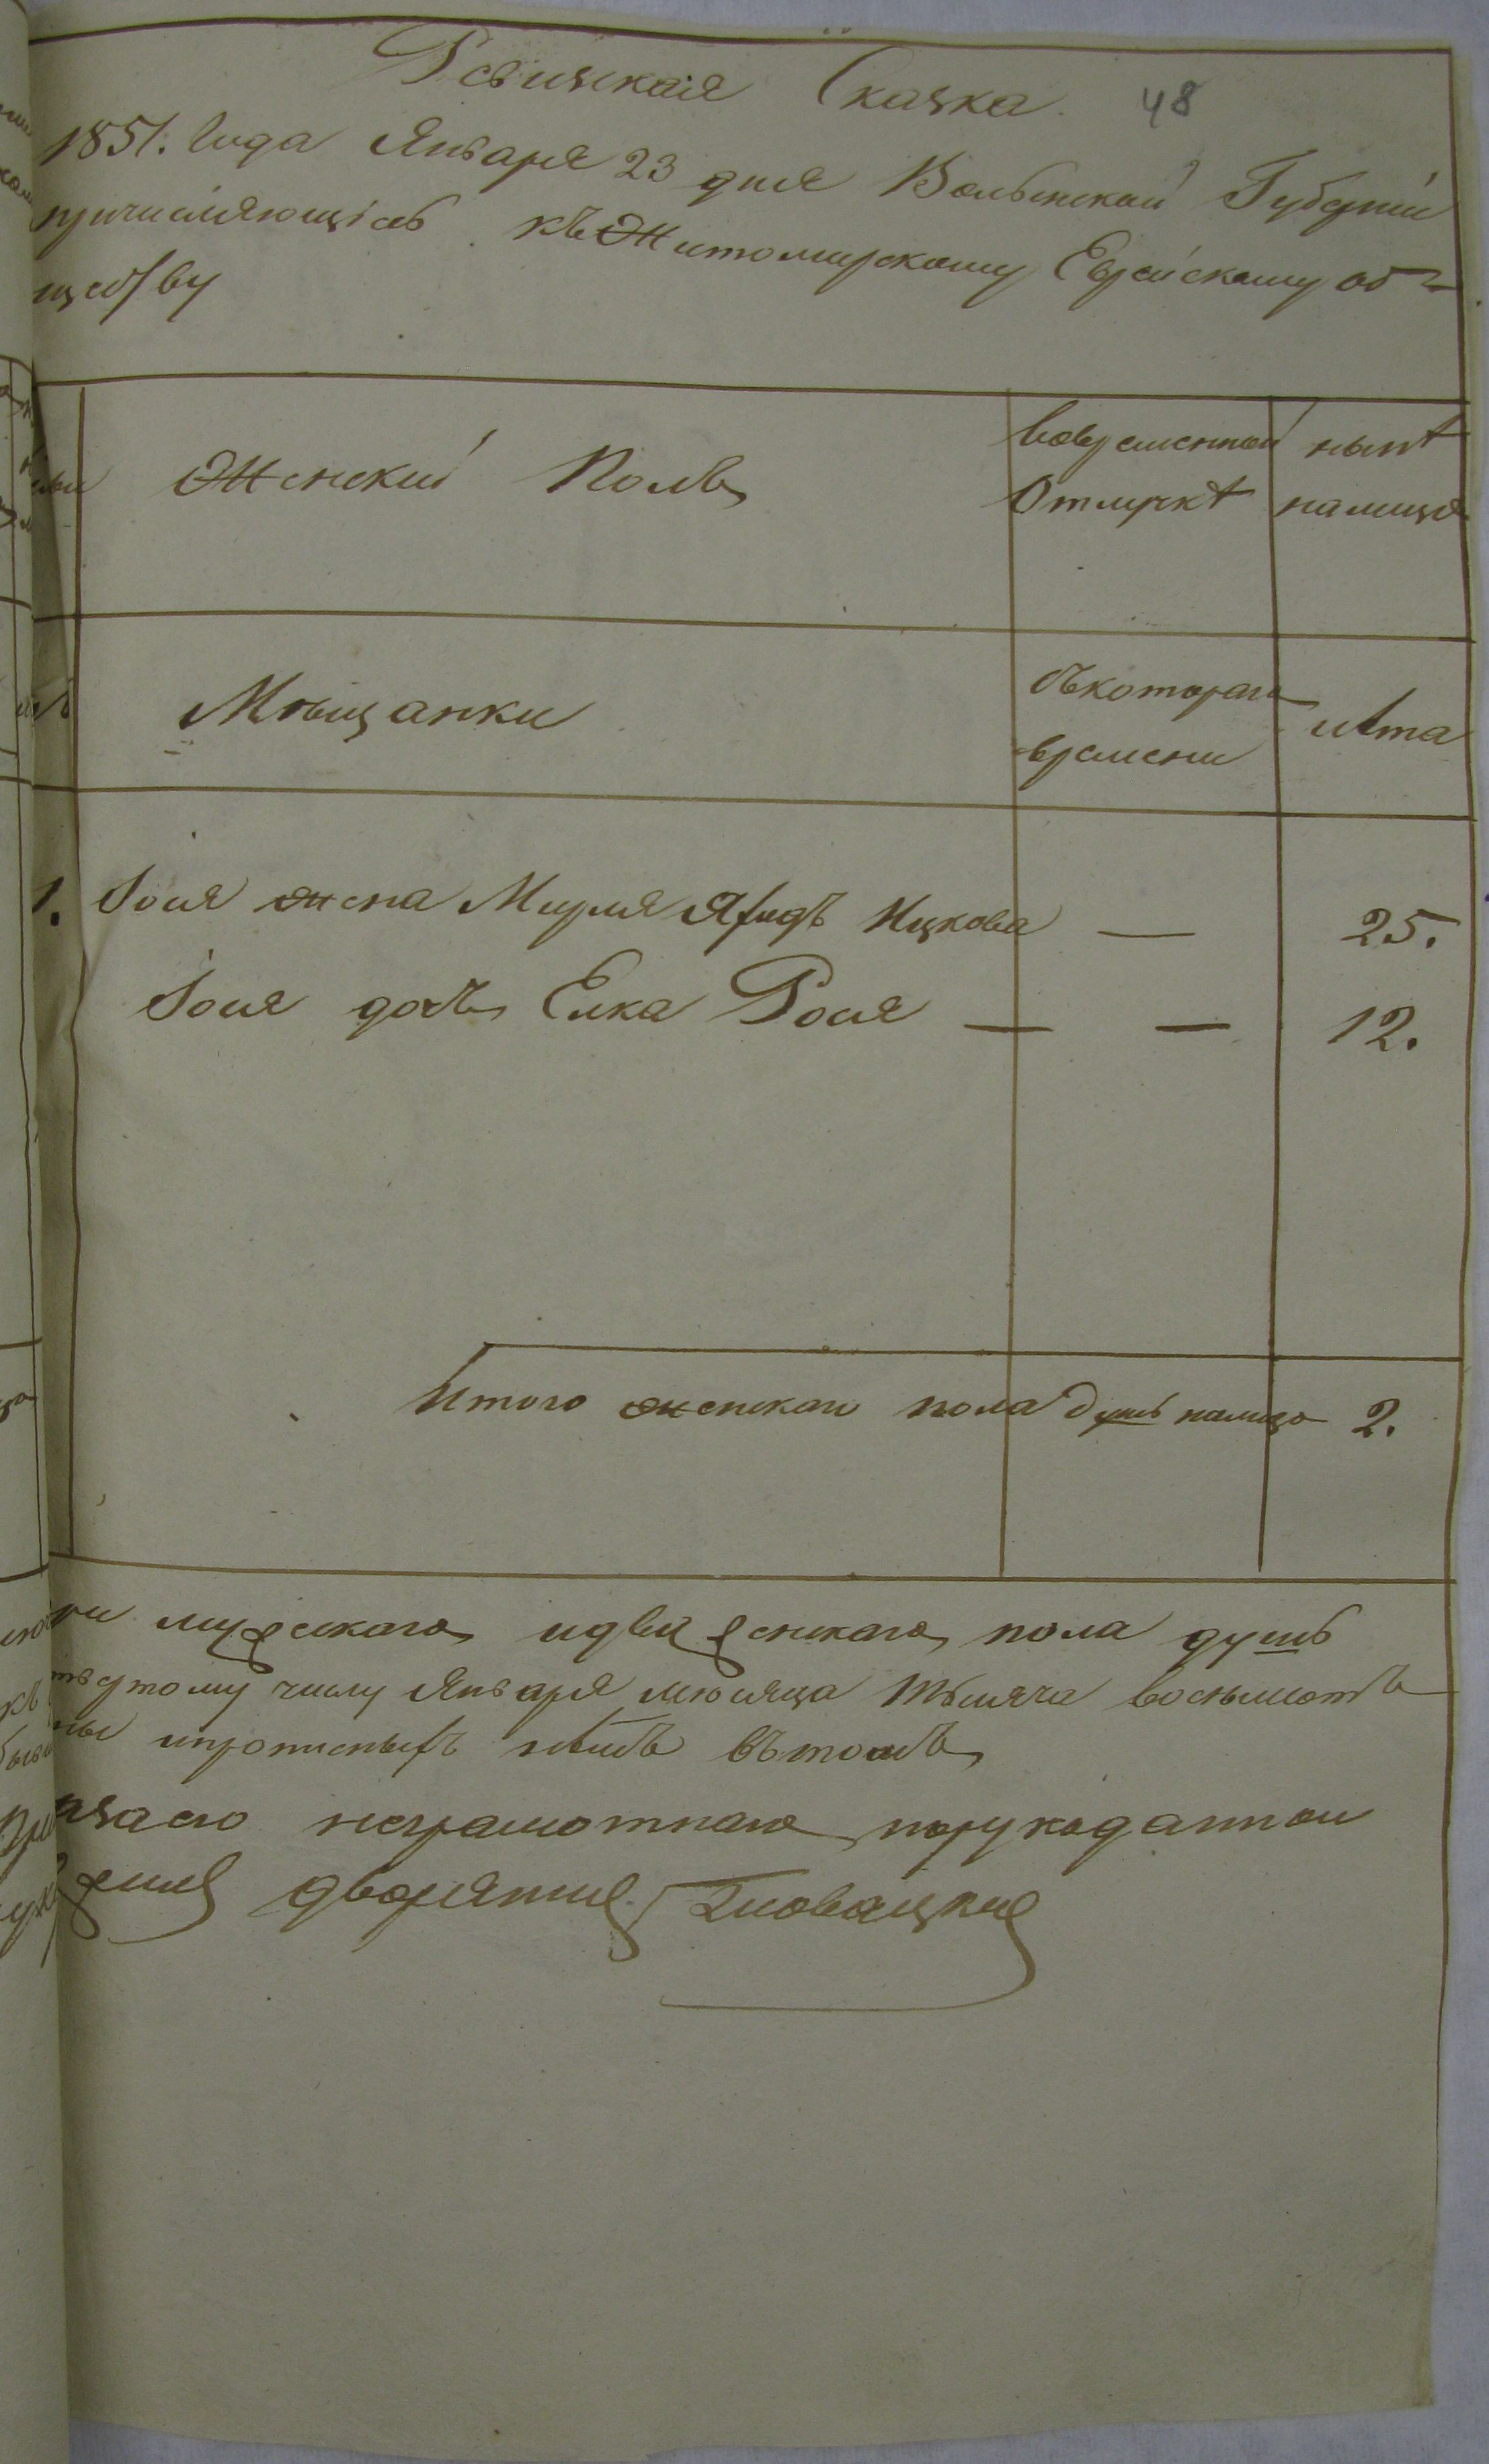 Ревизская Сказка. 48
1851. Года Января 23 дня Волынской Губернии
причисляющiесь къ Житомирскому Еврейскому об=
ществу
Женский Полъ
Вовременной Отлучкѣ
нынѣ налицо
Мѣщанки
съкотораго времени
лѣта
1. Iося жена Мирля Яхидъ Ицкова — 25.
Iося дочь Елка Рося — — 12.
Итого женскаго пола душъ налицо 2.
мужескаго идвѣ женскаго пола душъ
тому числу Января мѣсяца тысяча восемьсотъ
ипрописныхъ нѣтъ вътомъ
засго неграмотнаго порукоданной
дворянинъ